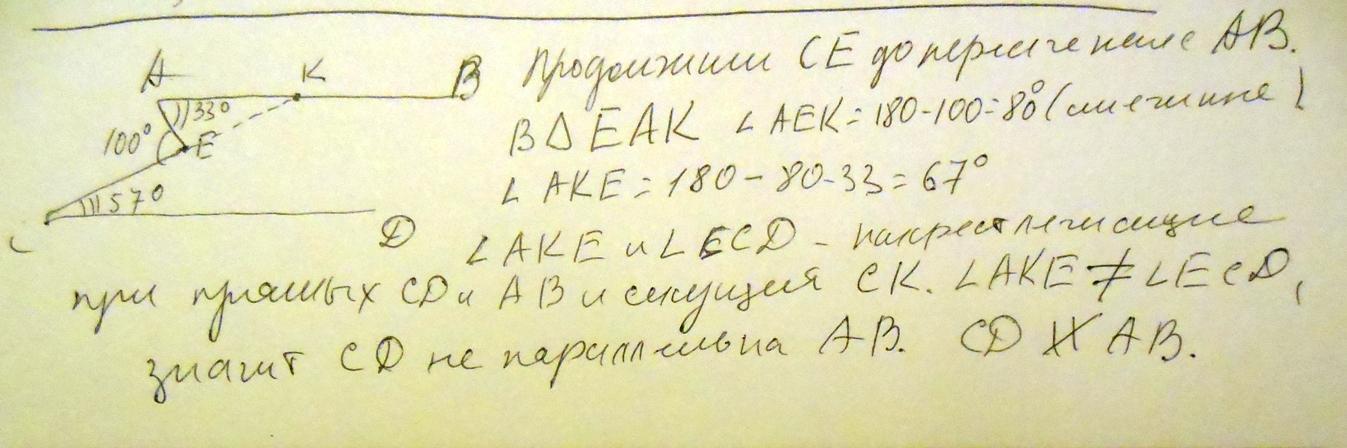 A K B Продолжим CE до пересечения с AB.
33°
100° E В △ EAK ∠ AEK = 180-100=80° (смежные)
57° ∠ AKE = 180 - 80-33 = 67°
C D ∠ AKE и ∠ ECD - накрестлежащие
при прямых CD и AB и секущей CK. ∠AKE ≠ ∠ECD,
значит CD не параллельна AB. CD ∦ AB.